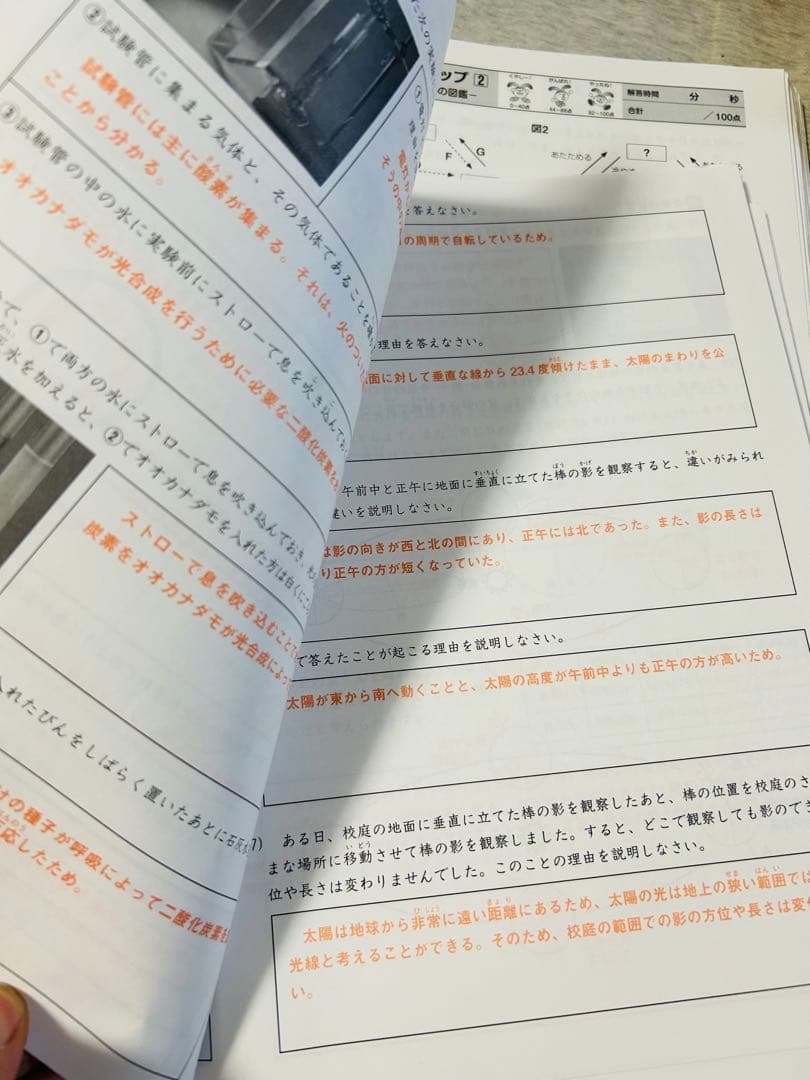 ②試験管に集まる気体と、その気体であることを
試験管には主に酸素が集まる。それは、火のつい
ことから分かる。
③試験管の中の水に実験前にストローで息を吹き込んでお
オオカナダモが光合成を行うために必要な二酸化炭素を
て、①で両方の水にストローで息を吹き込んでおき、
水を加えると、②でオオカナダモを入れた方は白くにご
ストローで息を吹き込むこと
炭素をオオカナダモが光合成によっ
入れたびんをしばらく置いたあとに石灰水
の種子が呼吸によって二酸化炭素を
応したため。
ップ②
の図鑑−
くやしい!
がんばれ!
やったね!
0〜40点
44〜88点
92〜100点
解答時間 分 秒
合計 /100点
図2
F
G
あたためる
?
答えなさい。
の周期で自転しているため。
理由を答えなさい。
面に対して垂直な線から23.4度傾けたまま、太陽のまわりを公
午前中と正午に地面に垂直に立てた棒の影を観察すると、違いがみられ
違いを説明しなさい。
は影の向きが西と北の間にあり、正午には北であった。また、影の長さは
り正午の方が短くなっていた。
で答えたことが起こる理由を説明しなさい。
太陽が東から南へ動くことと、太陽の高度が午前中よりも正午の方が高いため。
7) ある日、校庭の地面に垂直に立てた棒の影を観察したあと、棒の位置を校庭のさ
まな場所に移動させて棒の影を観察しました。すると、どこで観察しても影のでき
位や長さは変わりませんでした。このことの理由を説明しなさい。
太陽は地球から非常に遠い距離にあるため、太陽の光は地上の狭い範囲では
光線と考えることができる。そのため、校庭の範囲での影の方位や長さは変
い。